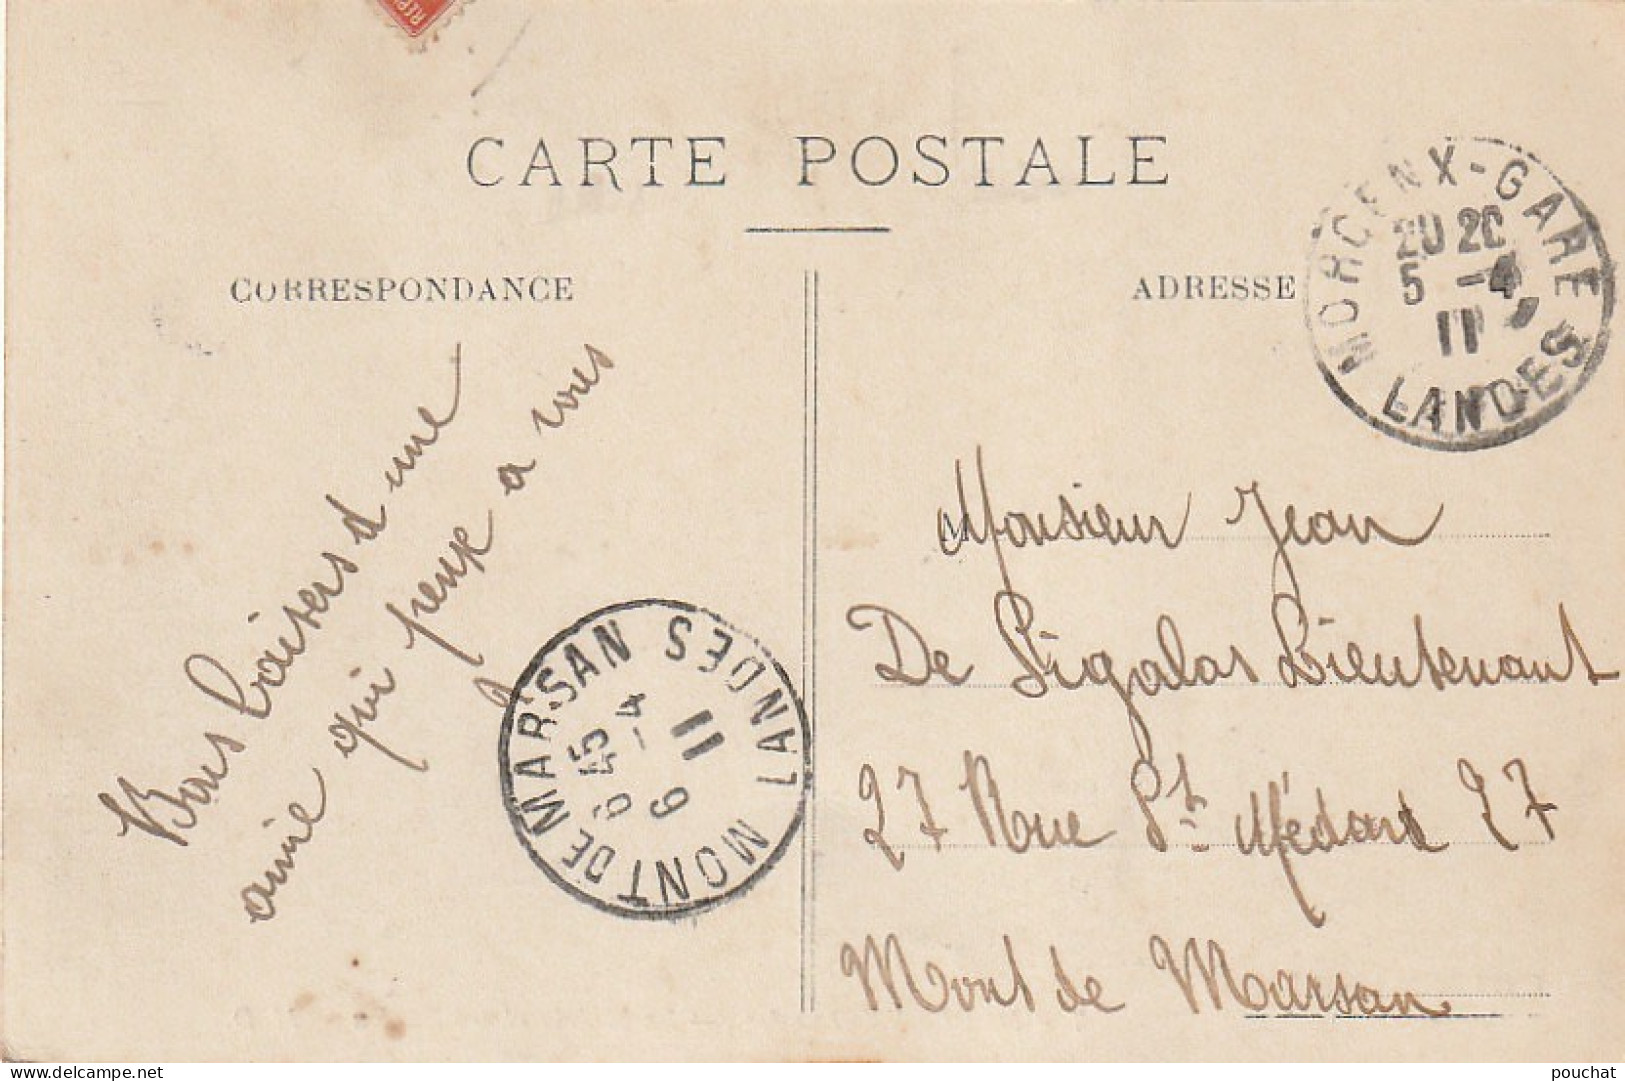 CARTE POSTALE
CORRESPONDANCE
ADRESSE
MORCENX-GARE
20 20
5 -4
11
LANDES
Bons baisers d une
amie qui pense a vous
MONT DE MARSAN
6 45
6 -4
11
LANDES
Monsieur Jean
De Sigalas Lieutenant
27 Rue St Médard 27
Mont de Marsan
delcampe.net
pouchat